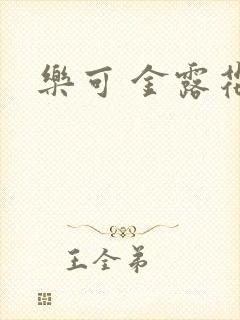 樂可 金露
王全弟